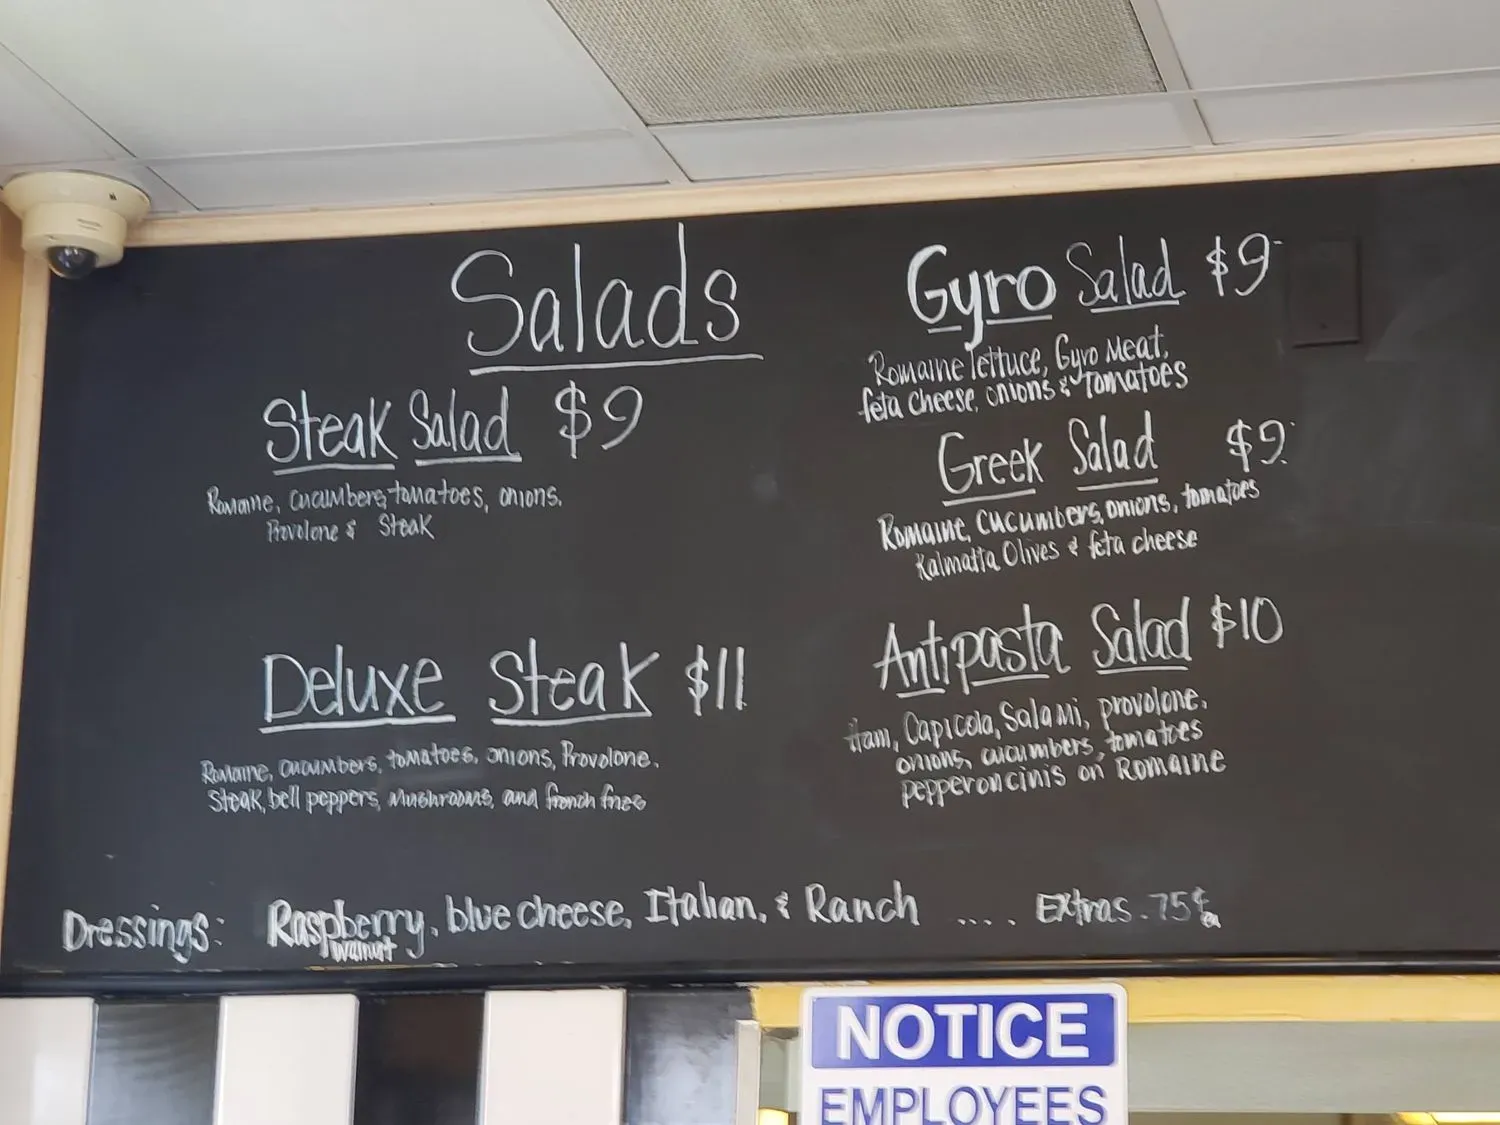 Salads
Steak Salad $9
Romaine, cucumbers, tomatoes, onions,
Provolone & Steak
Deluxe Steak $11
Romaine, cucumbers, tomatoes, onions, Provolone,
Steak, bell peppers, mushrooms, and french fries
Gyro Salad $9
Romaine lettuce, Gyro Meat,
feta cheese, onions & Tomatoes
Greek Salad $9
Romaine, cucumbers, onions, tomatoes
Kalmatta Olives & feta cheese
Antipasta Salad $10
Ham, Capicola, Salami, provolone,
onions, cucumbers, tomatoes
pepperoncinis on Romaine
Dressings: Raspberry, blue cheese, Italian, & Ranch ..... Extras .75¢ ea
walnut
NOTICE
EMPLOYEES